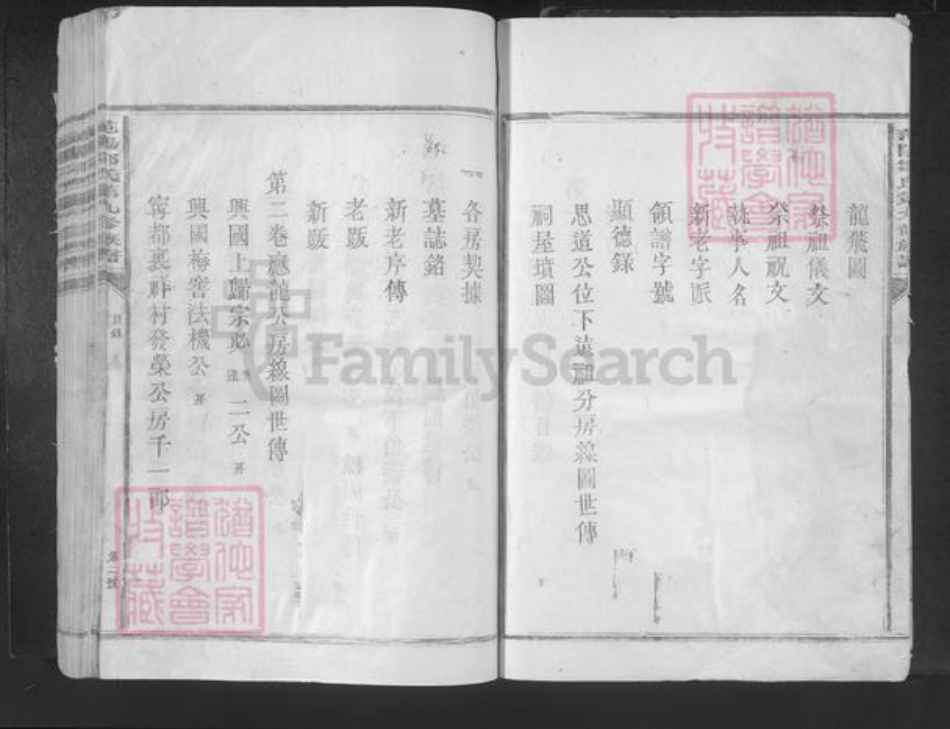 龍飛圖
祭祖儀文
祭祖祝文
執事人名
新老字派
領譜字號
顯德錄
思道公位下遠祖分房線圖世傳
祠屋墳圖
各房契據
墓誌銘
新老序傳
老跋
新跋
第二卷應龍公房線圖世傳
興國上歸宗 二公
興國梅窖法機公
寧都裏祥村發榮公房千一郎
目錄
FamilySearch
譜學會
收藏
譜學會
收藏